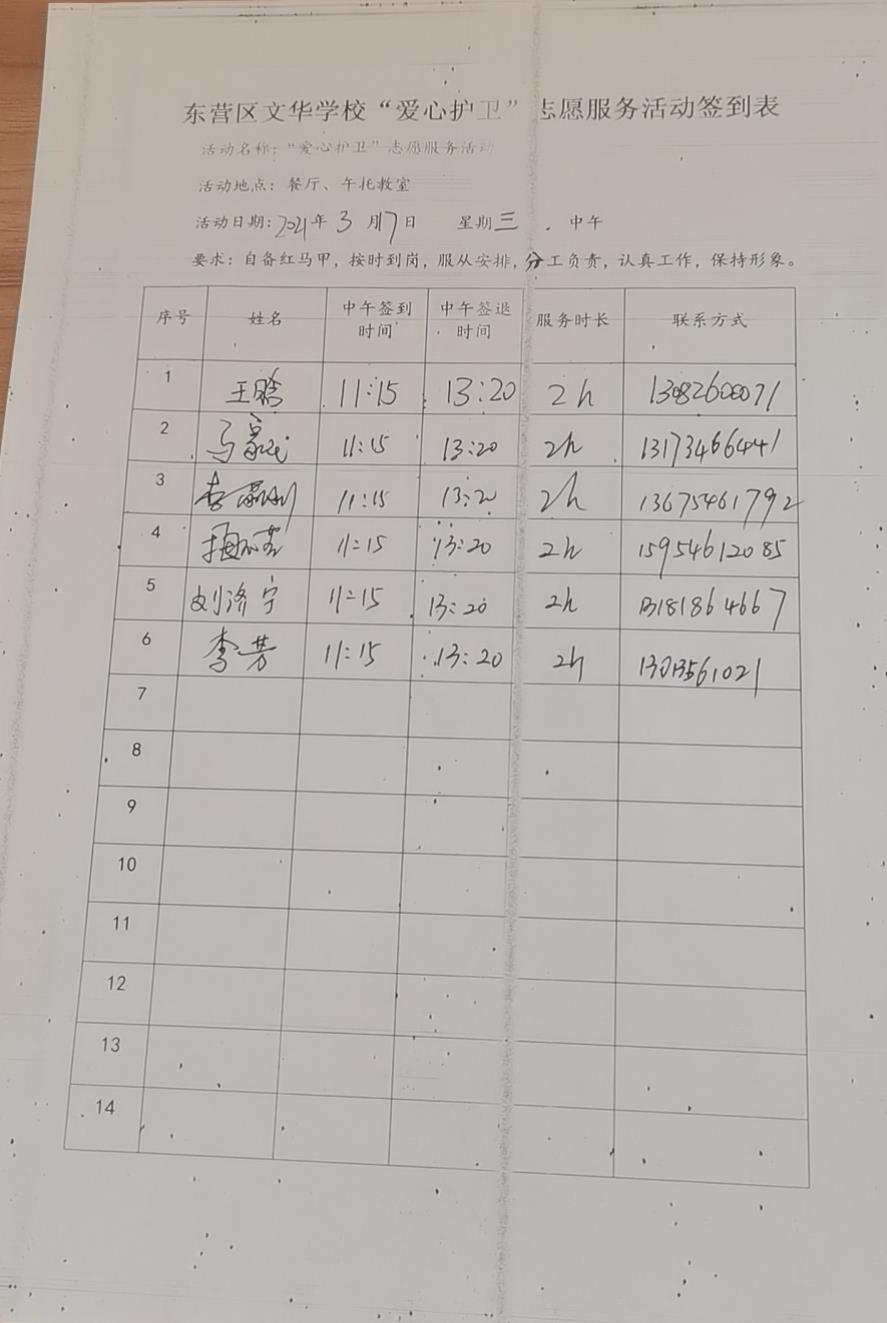 东营区文华学校“爱心护卫”志愿服务活动签到表
活动名称：“爱心护卫”志愿服务活动
活动地点：餐厅、午托教室
活动日期：2021年 3 月17日 星期三 . 中午
要求：自备红马甲，按时到岗，服从安排，分工负责，认真工作，保持形象。
序号 姓名 中午签到时间 中午签退时间 服务时长 联系方式
1 王晗 11:15 13:20 2h 13082600071
2 11:15 13:20 2h 13173466441
3 11:15 13:20 2h 13675461792
4 11:15 13:20 2h 15954612085
5 刘济宁 11:15 13:20 2h 13181864667
6 李芳 11:15 13:20 2h
7
8
9
10
11
12
13
14